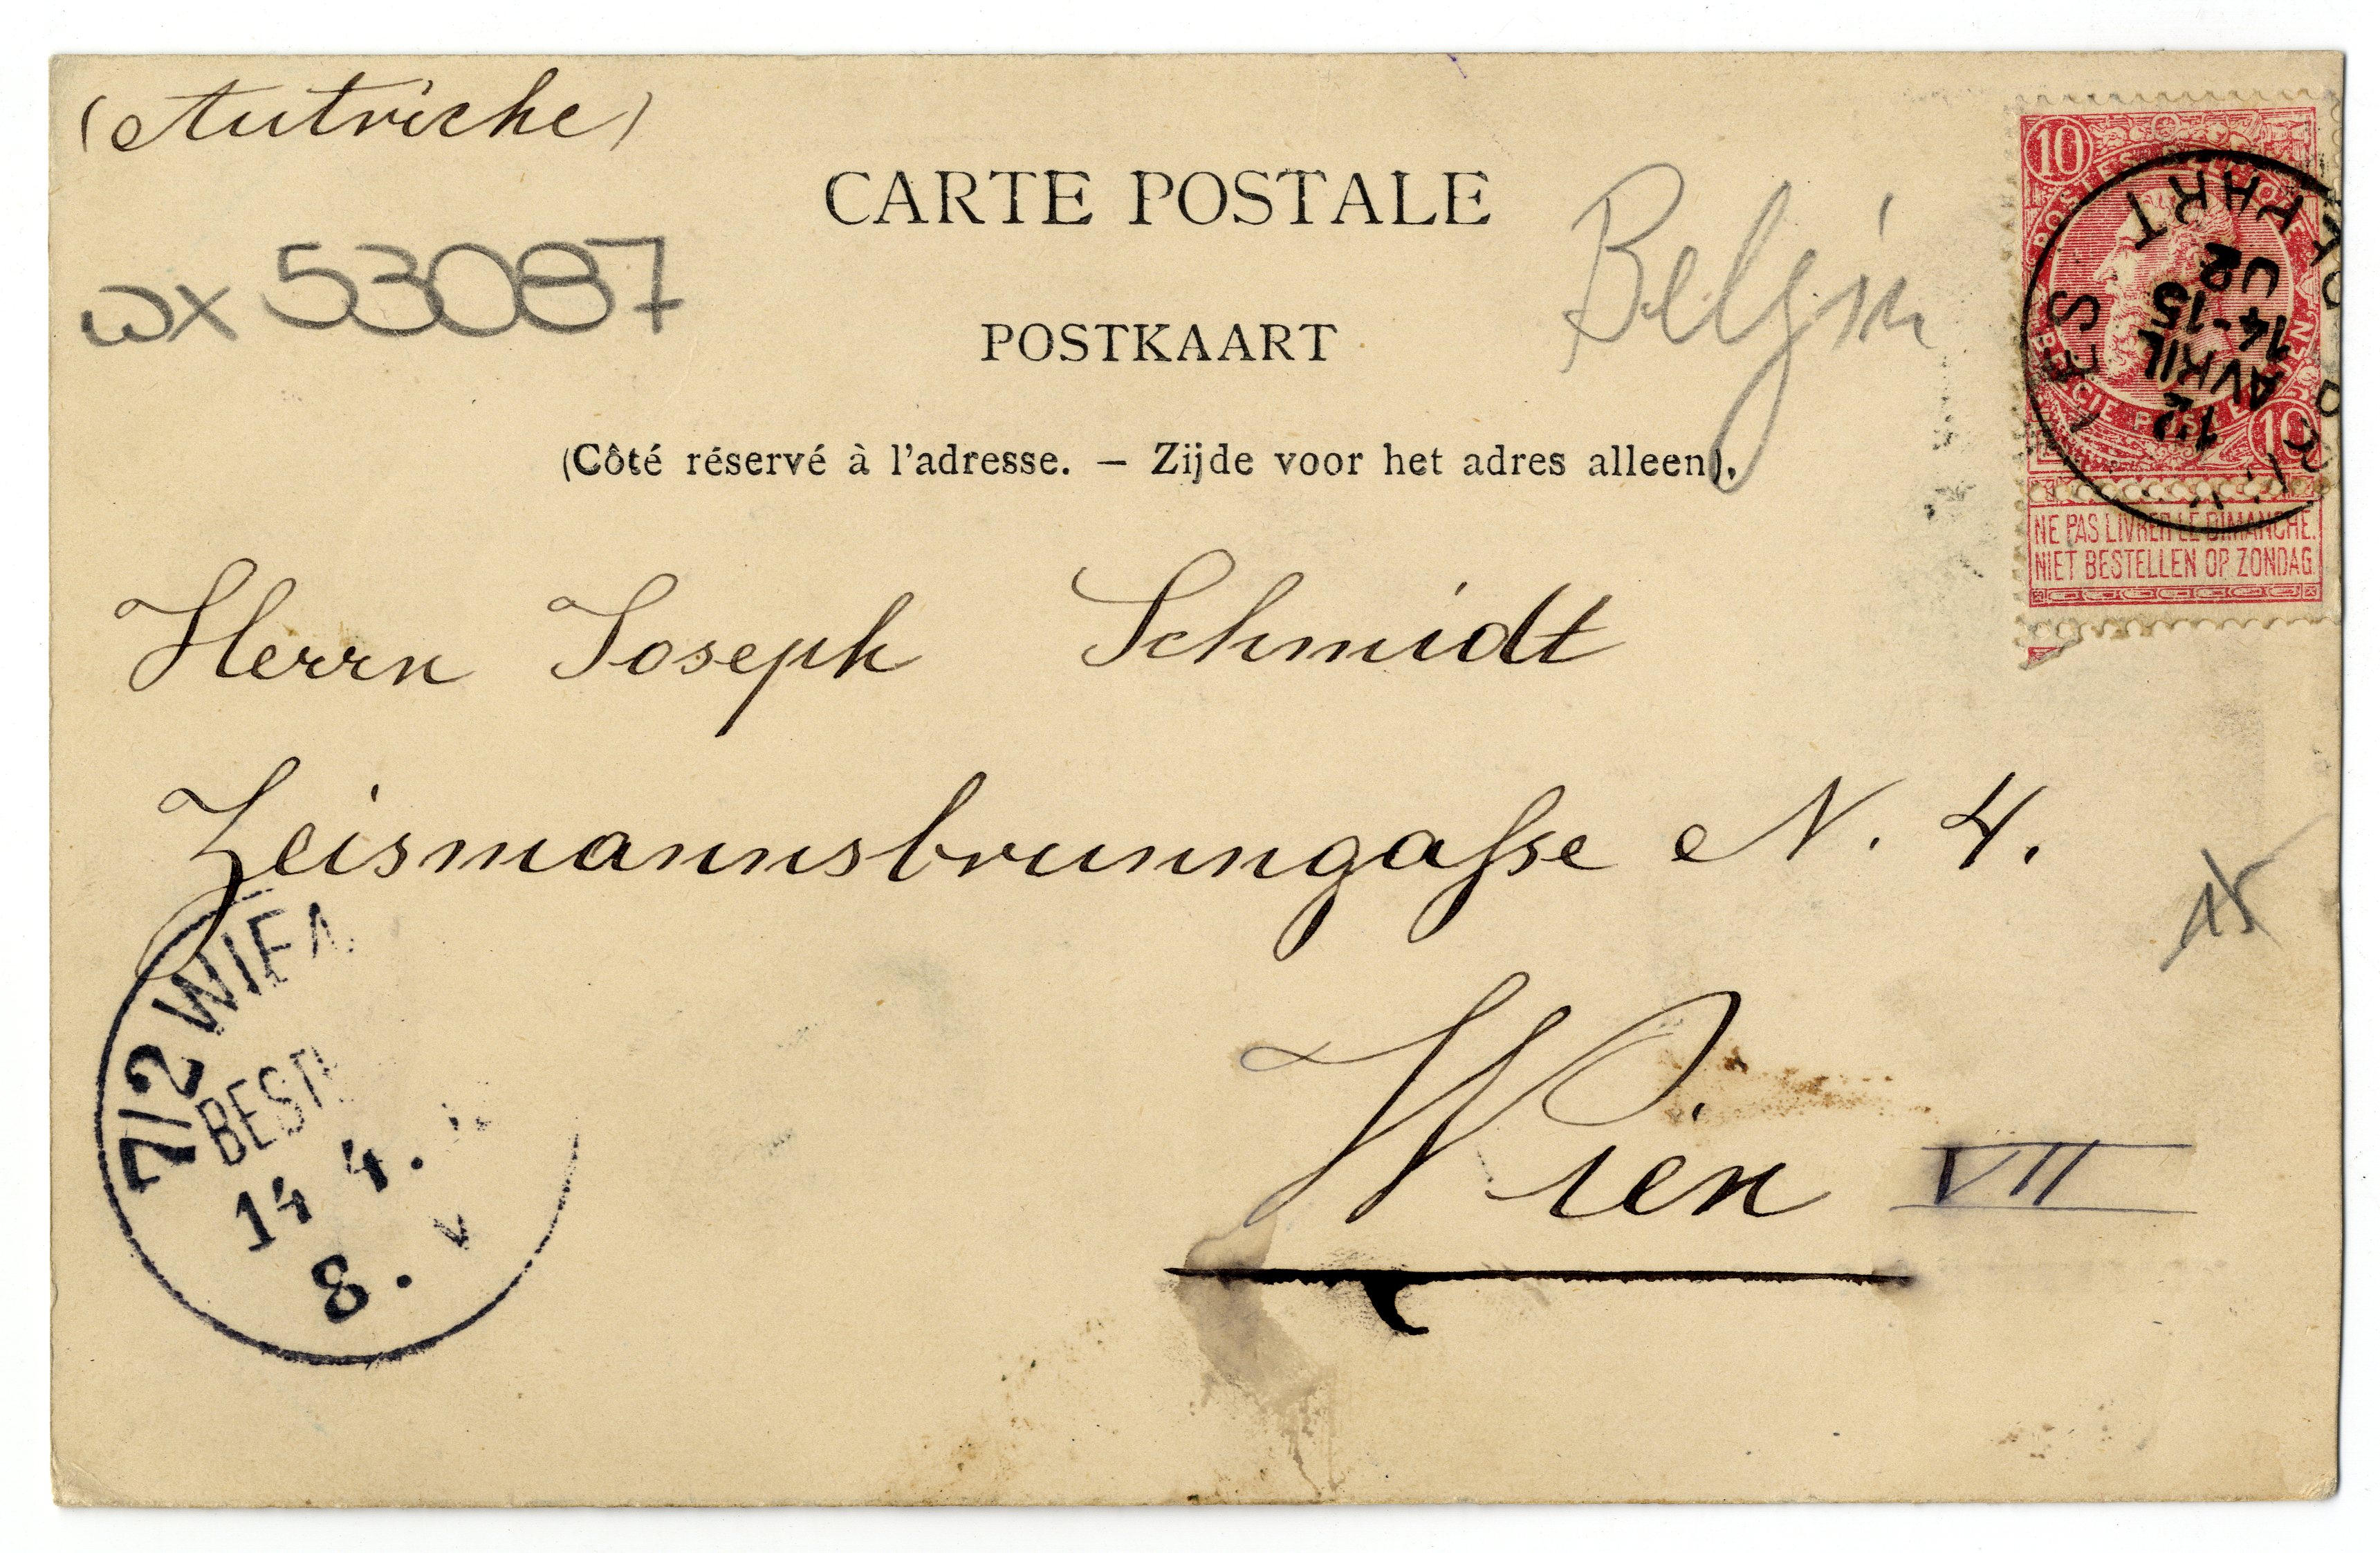 (Autriche)
CARTE POSTALE
wx 53087
POSTKAART
(Côté réservé à l'adresse. — Zijde voor het adres alleen).
10
POSTES BELGIQUE
BELGIE POSTERIJEN
10
NE PAS LIVRER LE DIMANCHE.
NIET BESTELLEN OP ZONDAG.
PART
12
AVRIL
14-15
02
Herrn Joseph Schmidt
Zeismannsbrunngasse N. 4.
15
Wien VII
7/2 WIEN
BEST
14 4.
8. V